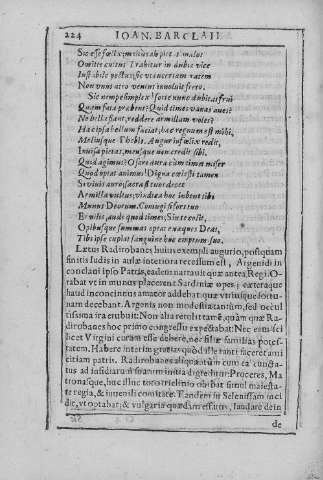 224 IOAN. BARCLAII
Sic esse
Omittit
Instabile pectus; sic vt incertam ratem
Non vnus atro venius inuoluit freto.
Sic nempe simplex? sorte nunc dubitas frui
Quam fata praebent? Quid times vanas aues?
Ne bella fiant, reddere armillam voles?
Haec ipsa bellum faciat; haec regnum est mihi,
Meliusque Thebis. Augur infoelix redit,
Inuisa pietas, mensque non credit sibi.
Quid agimus? O fare dura cum times miser
Quod optat animus! Digna coelesti tamen
Si viuis auro
Armilla vultus; vindica hoc iubent tibi
Munus Deorum. Coniugi
En vitis, audi quod times; Sint
Opibusque summas optat exaeques Deas,
Tibi ipse cuptat sanguine hoc emptum suo.
Laetus Radirobanes huius exempli augurio, postquam
finitis ludis in aulae interiora recessum est, Argenidi in
conclaui ipso Patris, eadem narrauit quae antea Regi. O-
rabat vt in munus placerent Sardiniae opes; caeteraque
haud inconcinnus amator addebat quae vtriusque fortu-
nam decebant. Argenis non modestia tantùm, sed occul
tissima ira erubuit. Non alia retulit tamē, quàm quae Ra-
dirobanes hoc primo congressu expectabat: Nec enim sci
licet Virgini curam esse debere, nec filiae familias potes-
tatem. Habere interim gratias quòd ille tanti faceret ami
citiam patris. Radirobanes aliquantùm cum ea cuncta-
tus ad insidiarum suarum initia digreditur. Proceres, Ma
tronasque, huc illuc toto triclinio obibat simul maiesta-
te regia, & iuuenili comitate. Tandem in Selenissam inci
dit, vt optabat; & vulgaria quaedam effatus, laudare dein
de